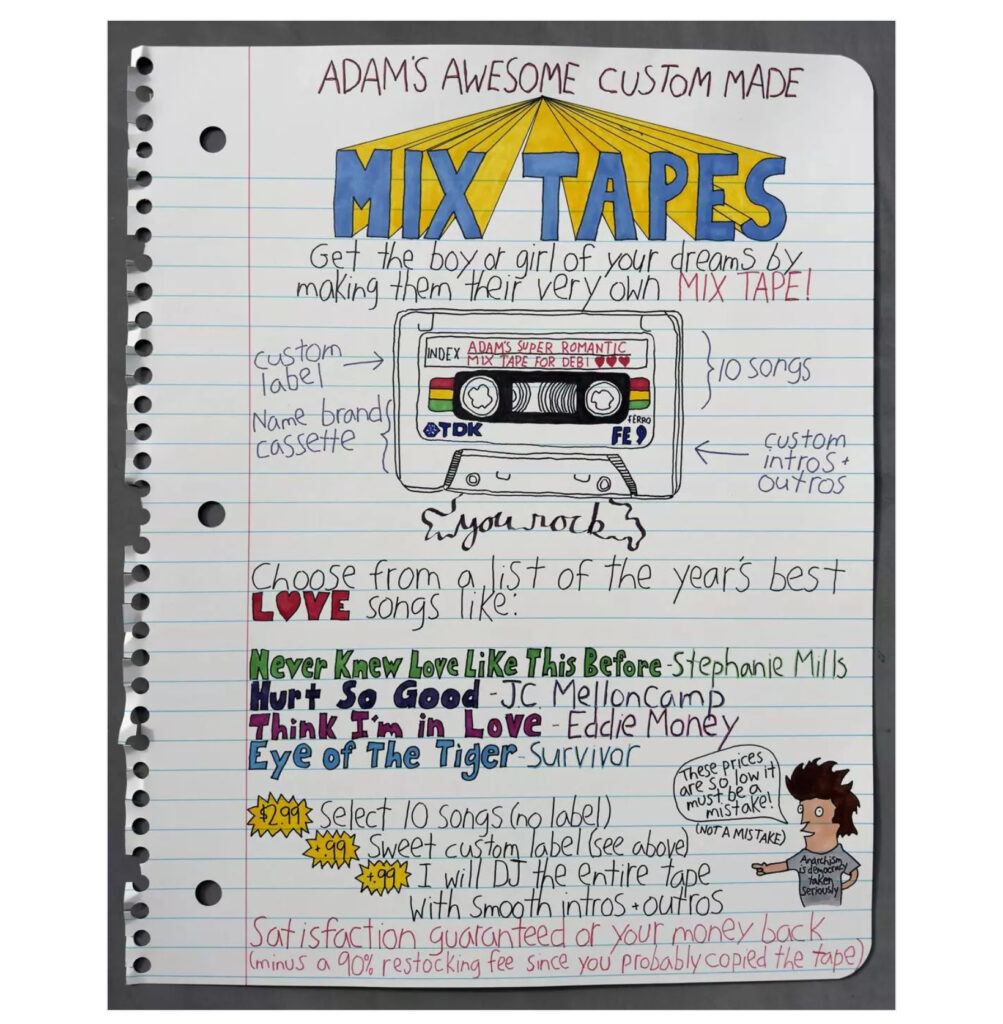 ADAM'S AWESOME CUSTOM MADE
MIX TAPES
Get the boy or girl of your dreams by
making them their very own MIX TAPE!
custom
label
Name brand
cassette
INDEX ADAM'S SUPER ROMANTIC
MIX TAPE FOR DEBI ♥♥♥
TDK
FERRO
FE 9
10 songs
custom
intros +
outros
you rock
Choose from a list of the year's best
L♥VE songs like:
Never Knew Love Like This Before - Stephanie Mills
Hurt So Good - J.C. Melloncamp
Think I'm in Love - Eddie Money
Eye of The Tiger - Survivor
$2.99 Select 10 songs (no label)
+.99 Sweet custom label (see above)
+.99 I will DJ the entire tape
with smooth intros + outros
These prices
are so low it
must be a
mistake!
(NOT A MISTAKE)
Anarchism
is democracy
taken
seriously
Satisfaction guaranteed or your money back
(minus a 90% restocking fee since you probably copied the tape)